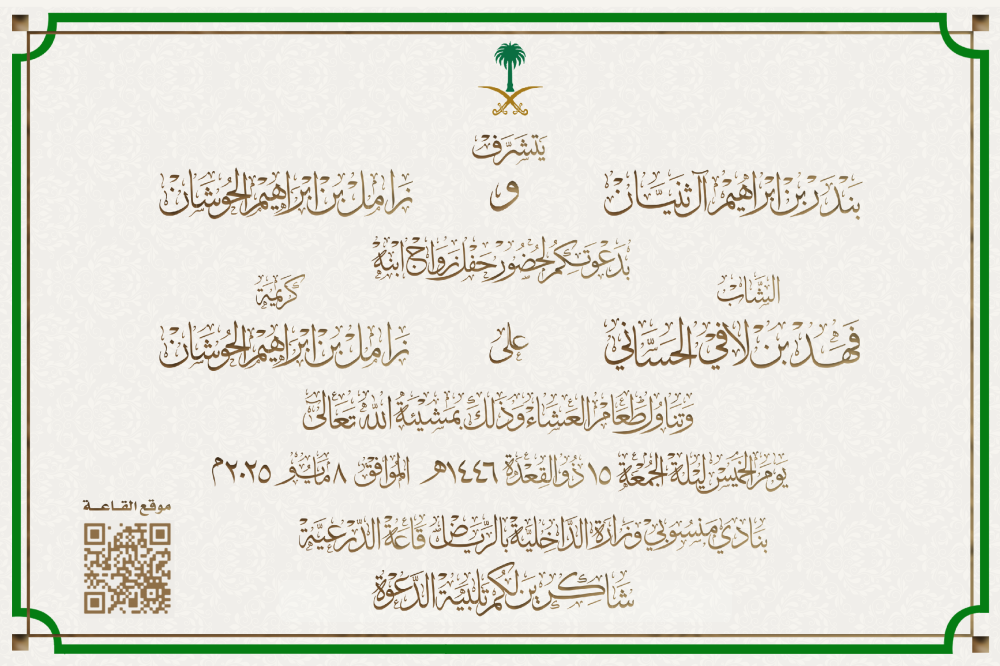 يتشرف
بندر بن ابراهيم آل ثنيان و زامل بن ابراهيم الحوشان
بدعوتكم لحضور حفل زواج ابنه
الشاب كريمة
فهد بن لافي الحساني على زامل بن ابراهيم الحوشان
وتناول طعام العشاء وذلك بمشيئة الله تعالى
يوم الخميس ليلة الجمعة ١٥ ذو القعدة ١٤٤٦هـ الموافق ٨ مايو ٢٠٢٥م
بنادي منسوبي وزارة الداخلية بالرياض قاعة الدرعية
شاكرين لكم تلبية الدعوة
موقع القاعة